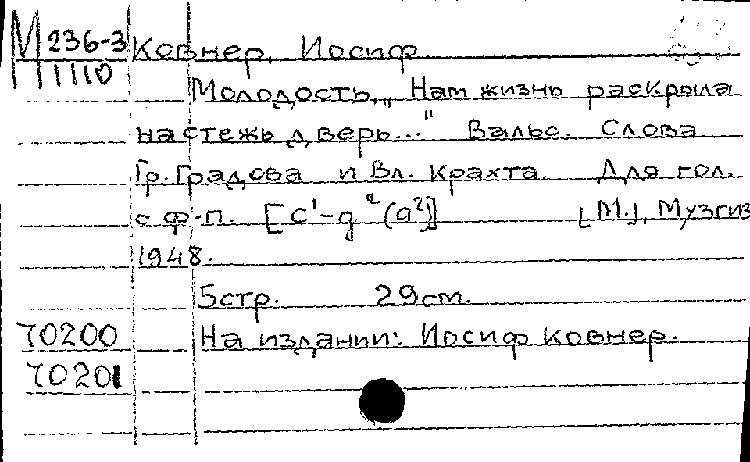 М 236-3 Ковнер, Иосиф
1110
Молодость. „Нам жизнь раскрыла
настежь дверь..." Вальс. Слова
Гр. Градова и Вл. Крахта. Для гол.
с ф-п. [c¹-g²(a²)] [М.], Музгиз
1948.
5 стр. 29 см.
70200 На издании: Иосиф Ковнер.
70201